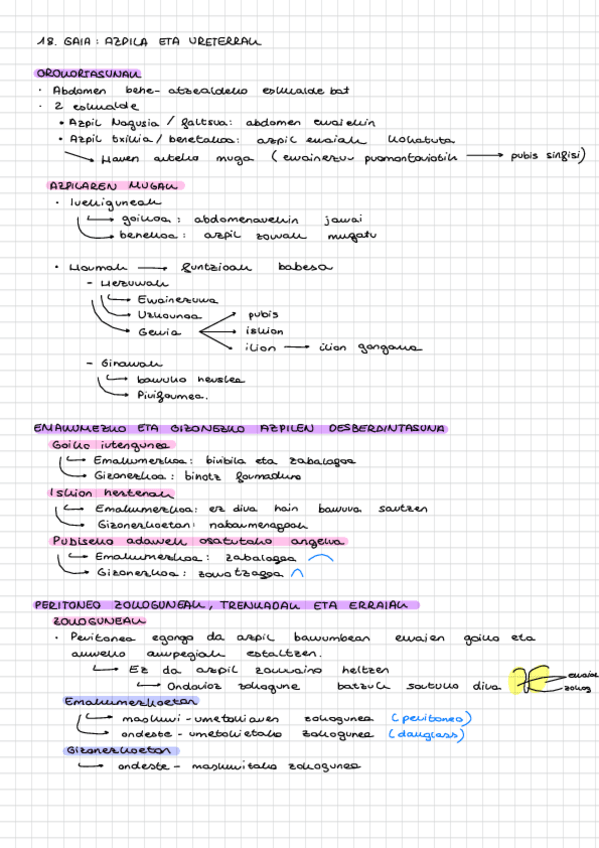 18. GAIA: AZPILA ETA URETERRAK
OROKORTASUNAK
· Abdomen behe-atzealdeko eskualde bat
· 2 eskualde
• Azpil Nagusia / faltsua: abdomen erraiekin
• Azpil txikia / benetakoa: azpil erraiak kokatuta
Haren arteko muga (errainezur promontoriotik → pubis sinfisi)
AZPILAREN MUGAK
· Irekiguneak
goikoa: abdomenarekin jarrai
behekoa: azpil zoruak mugatu
· Hormak → funtzioak babesa
- Hezurrak
Errainezurra
Uzkornoa
Gerria
pubis
iskion
ilion → ilion gangarra
- Giharrak
barruko heuslea
Piriformea.
EMAKUMEZKO ETA GIZONEZKO AZPILEN DESBERDINTASUNA
Goiko irtengunea
Emakumezkoa: biribila eta zabalagoa
Gizonezkoa: bihotz formadura
Iskion hertenak
Emakumezkoa: ez dira hain barrura sartzen
Gizonezkoetan: nabarmenagoak
Pubiseko adarrek osatutako angelua
Emakumezkoa: zabalagoa
Gizonezkoa: zorrotzagoa
PERITONEO ZOKOGUNEAK, TRENKADAK ETA ERRAIAK
ZOKOGUNEAK
· Peritonea egongo da azpil barrunbean erraien goiko eta
aurreko aurpegiak estaltzen.
Ez da azpil zorruraino heltzen
Ondorioz zokogune batzuk sortuko dira
erraiak
zokog
Emakumezkoetan
maskuri-umetokiaren zokogunea (peritoneo)
ondeste-umetokietako zokogunea (douglass)
Gizonezkoetan
ondeste-maskuritako zokogunea